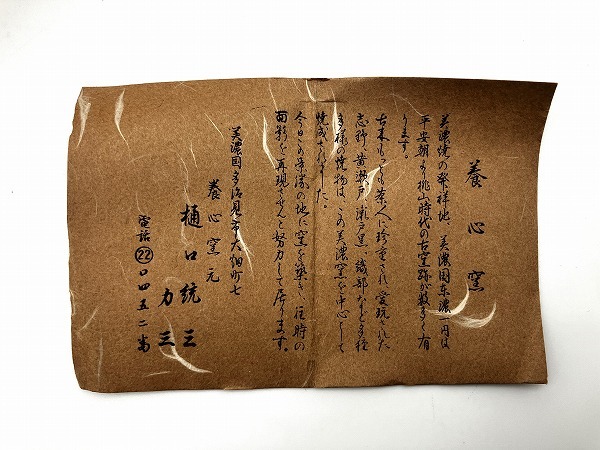 養心窯
美濃焼の発祥地、美濃国東濃一円は
平安朝より桃山時代の古窯跡が数多く有
ります。
古来もっとも茶人に珍重され愛玩された
志野、黄瀬戸、瀬戸黒、織部など多種
多様の焼物は、この美濃窯を中心として
焼成されました。
今日この由縁の地に窯を築き、往時の
面影を再現させんと努力して居ります。
美濃国多治見市大畑町七
養心窯元
樋口統三
力三
電話㉒〇四五二番